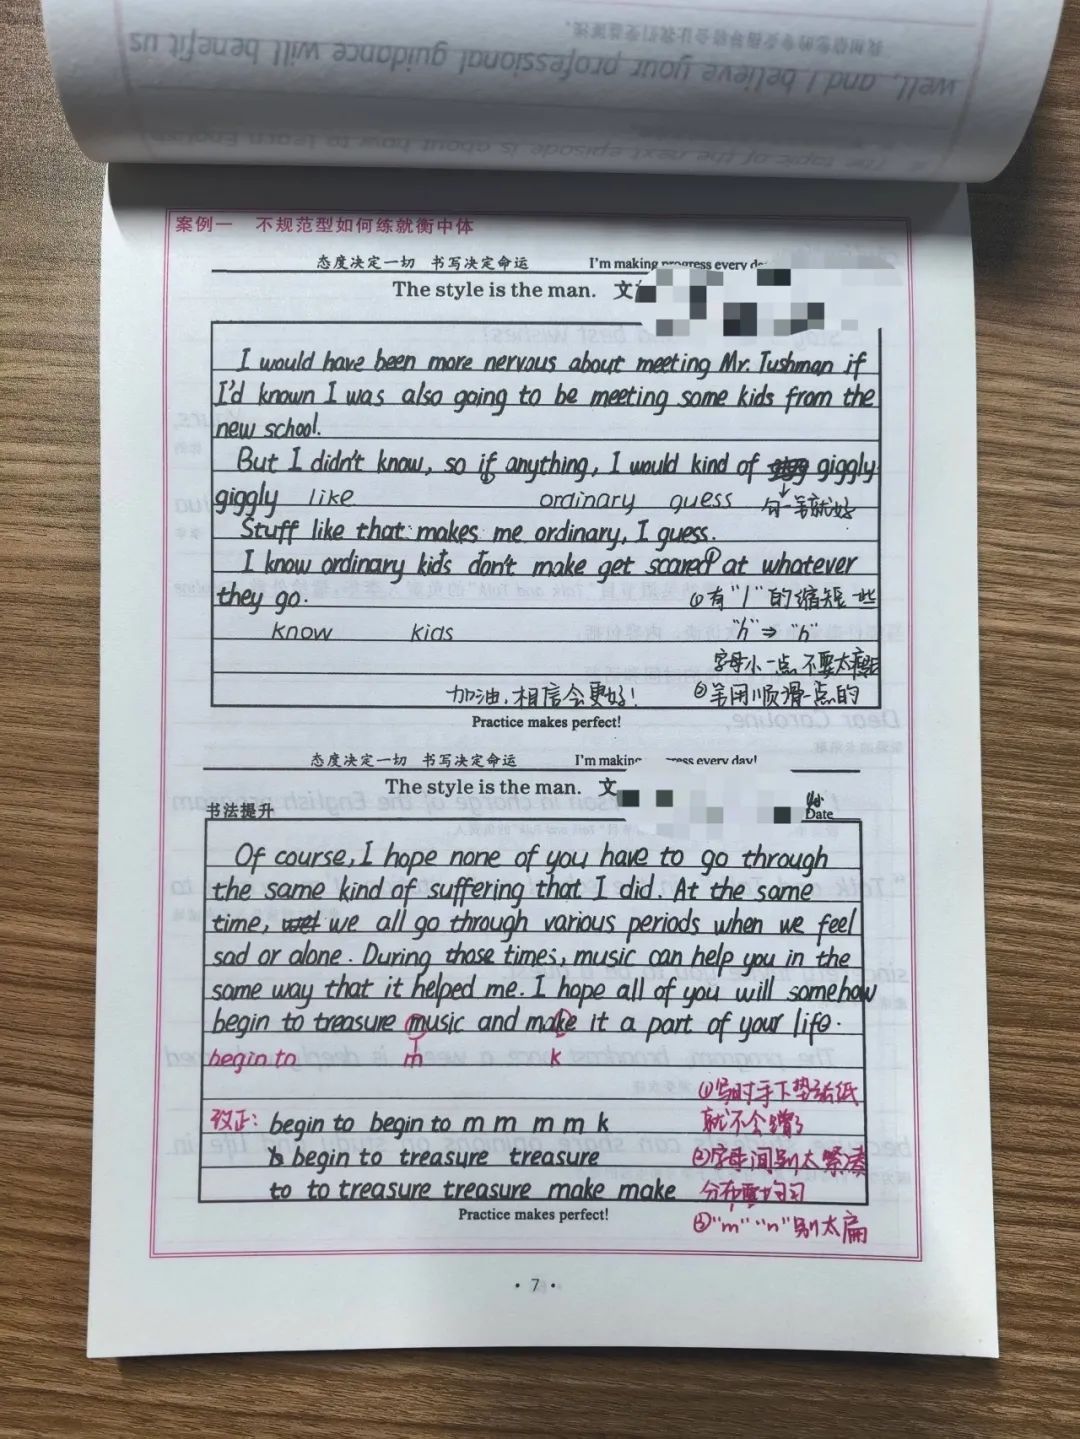 well, and I believe your professional guidance will benefit us
案例一 不规范型如何练就衡中体
态度决定一切 书写决定命运 I'm making progress every
The style is the man. 文
I would have been more nervous about meeting Mr. Tushman if
I'd known I was also going to be meeting some kids from the
new school.
But I didn't know, so if anything, I would kind of giggly
giggly like ordinary guess 勾一笔就好
Stuff like that makes me ordinary, I guess.
I know ordinary kids don't make get scared at whatever
they go. ①有"l"的缩短一些
know kids "h"⇒"h"
字母小一点 不要太瘦
加油,相信会更好! ②笔用顺滑一点的
Practice makes perfect!
态度决定一切 书写决定命运 I'm making ess every day!
The style is the man. 文
书法提升 Date
Of course, I hope none of you have to go through
the same kind of suffering that I did. At the same
time, we all go through various periods when we feel
sad or alone. During those times, music can help you in the
same way that it helped me. I hope all of you will somehow
begin to treasure music and make it a part of your life.
begin to m k
①写时手下垫张纸
改正: begin to begin to m m m m k 就不会蹭了
begin to treasure treasure ②字母间别太紧凑
to to treasure treasure make make 分布要均匀
Practice makes perfect! ③"m" "n"别太扁
· 7 ·